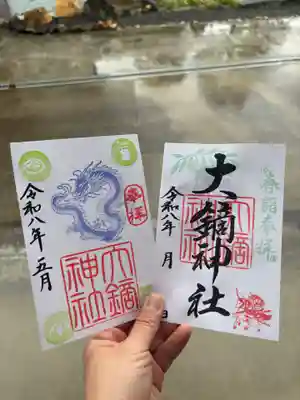 奉拝
令和八年五月
大鏑神社
大鏑神社
令和八年 月
春詣奉拝
日